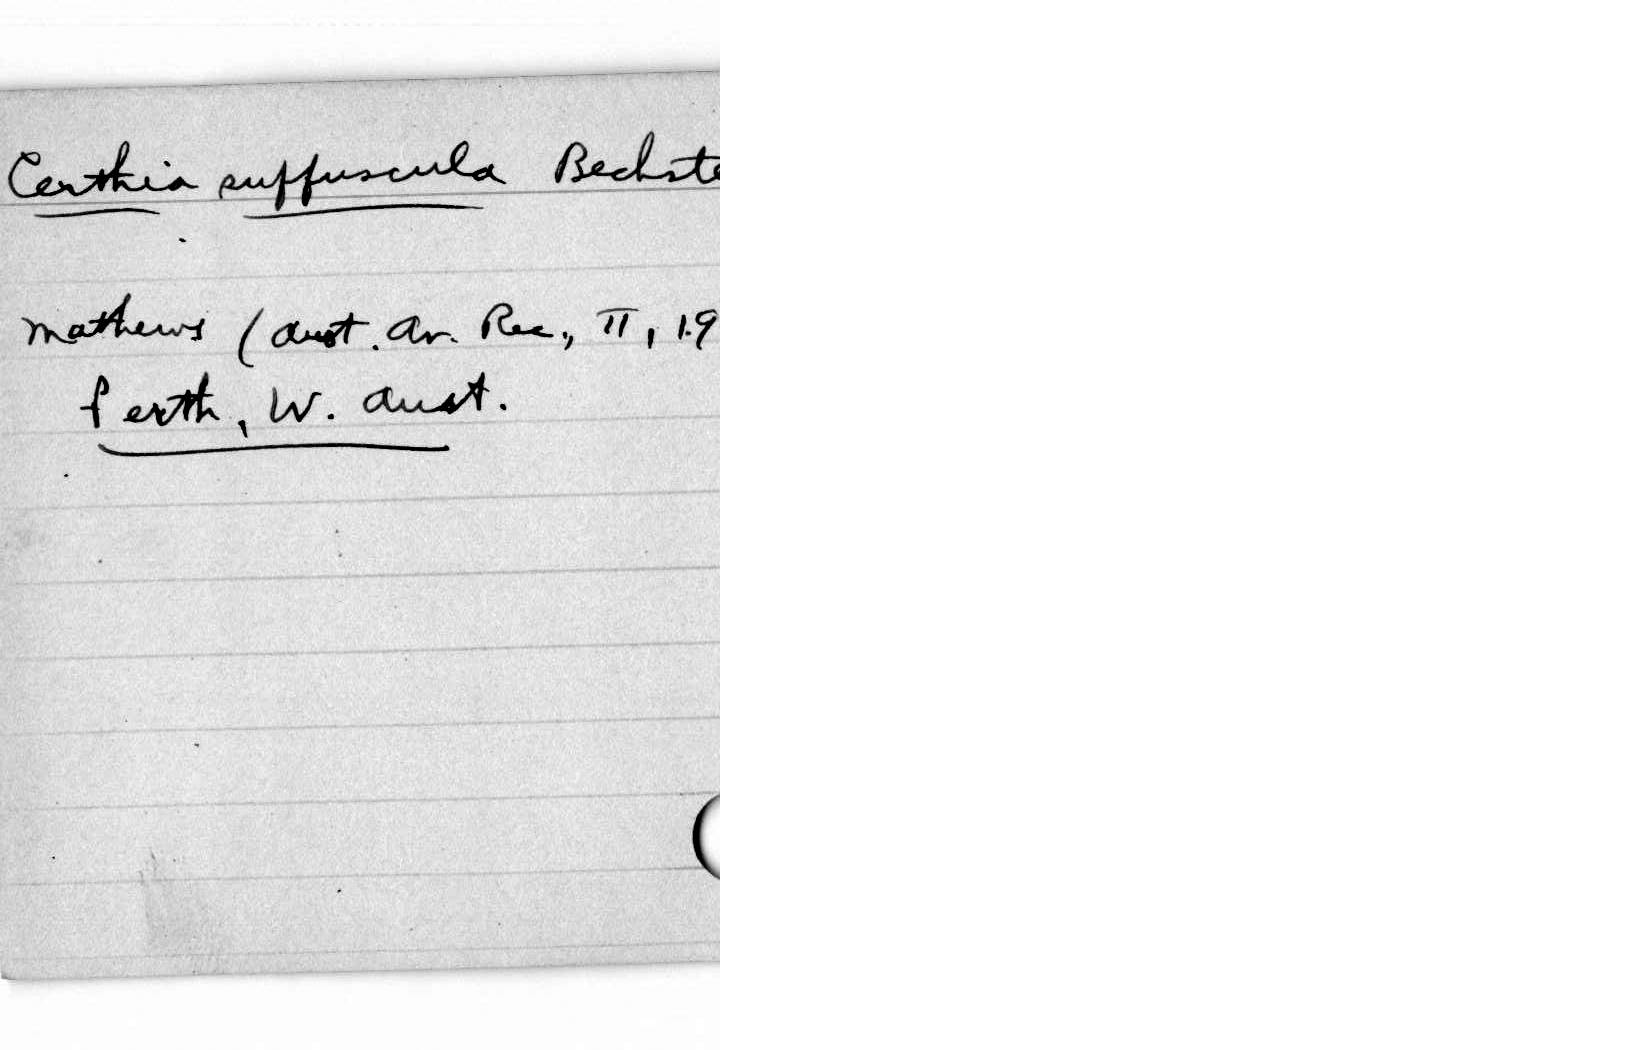 Certhia suffuscula Bechste
Mathews (Aust. Av. Rec., II, 19
Perth, W. Aust.